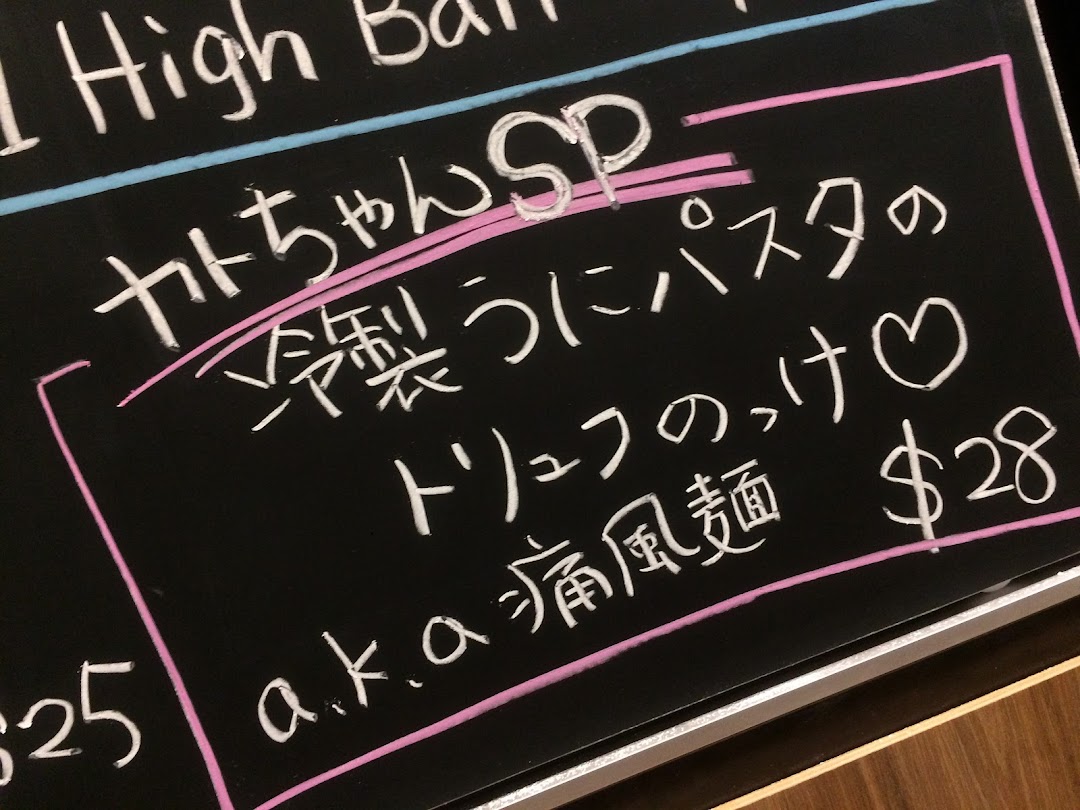 High Ball
カトちゃんSP
冷製うにパスタの
トリュフのっけ♡
a.k.a 痛風麺 $28
$25